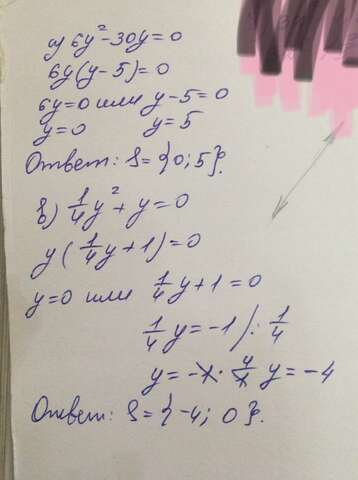 а) 6y²-30y=0
6y(y-5)=0
6y=0 или y-5=0
y=0 y=5
Ответ: S={0;5}.
в) 1/4y²+y=0
y(1/4y+1)=0
y=0 или 1/4y+1=0
1/4y=-1/:1/4
y=-1·4/1 y=-4
Ответ: S={-4; 0}.